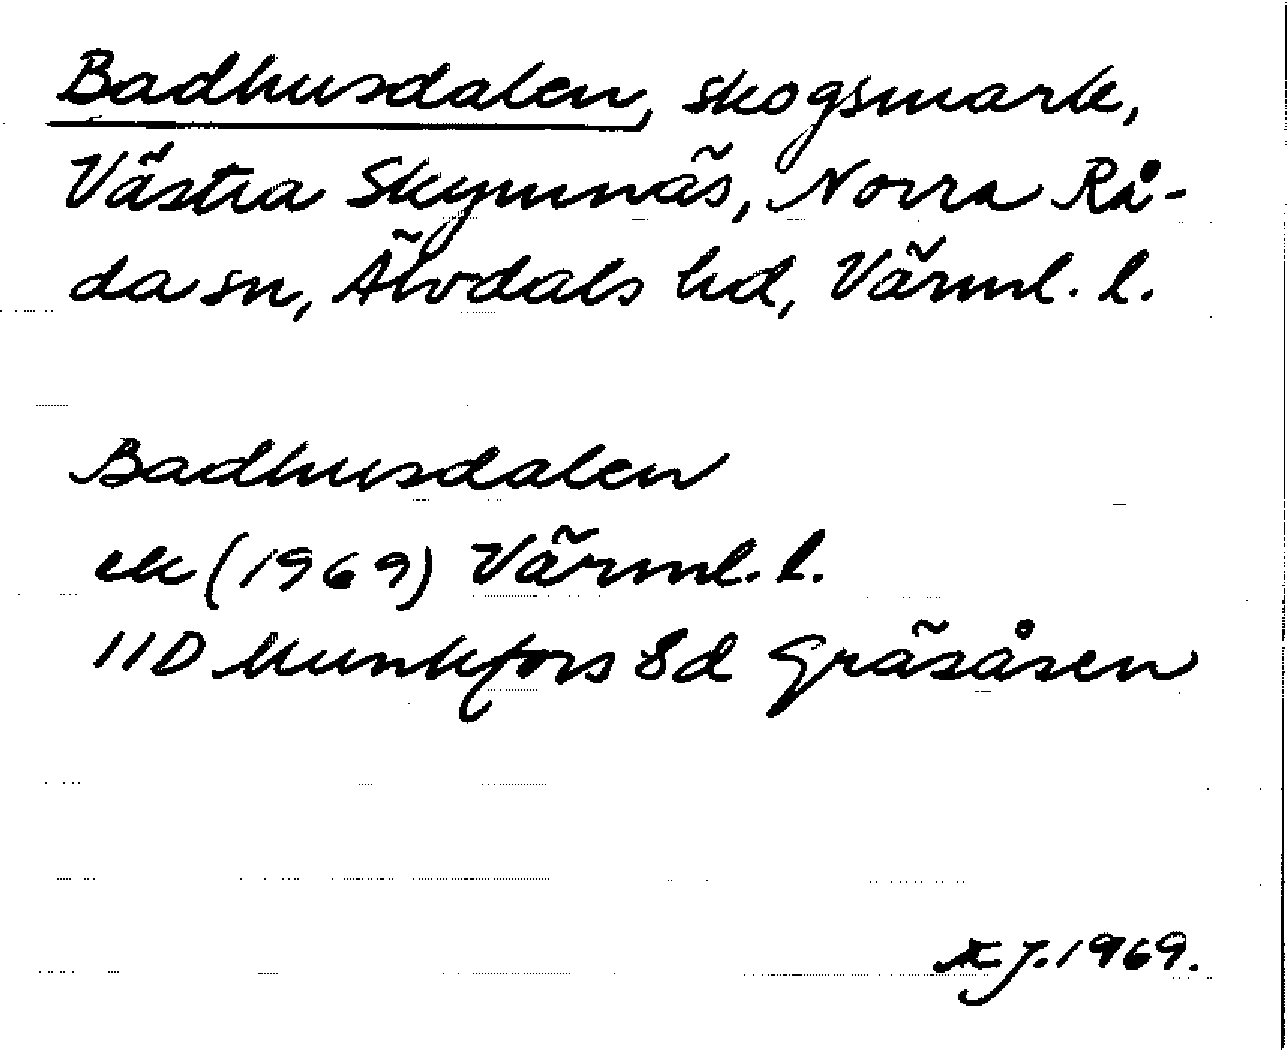 Badhusdalen, skogsmark,
Västra Skymnäs, Norra Rå-
da sn, Älvdals hd, Värml. l.
Badhusdalen
ek (1969) Värml. l.
11D Munkfors 8d Gräsåsen
J. 1969.